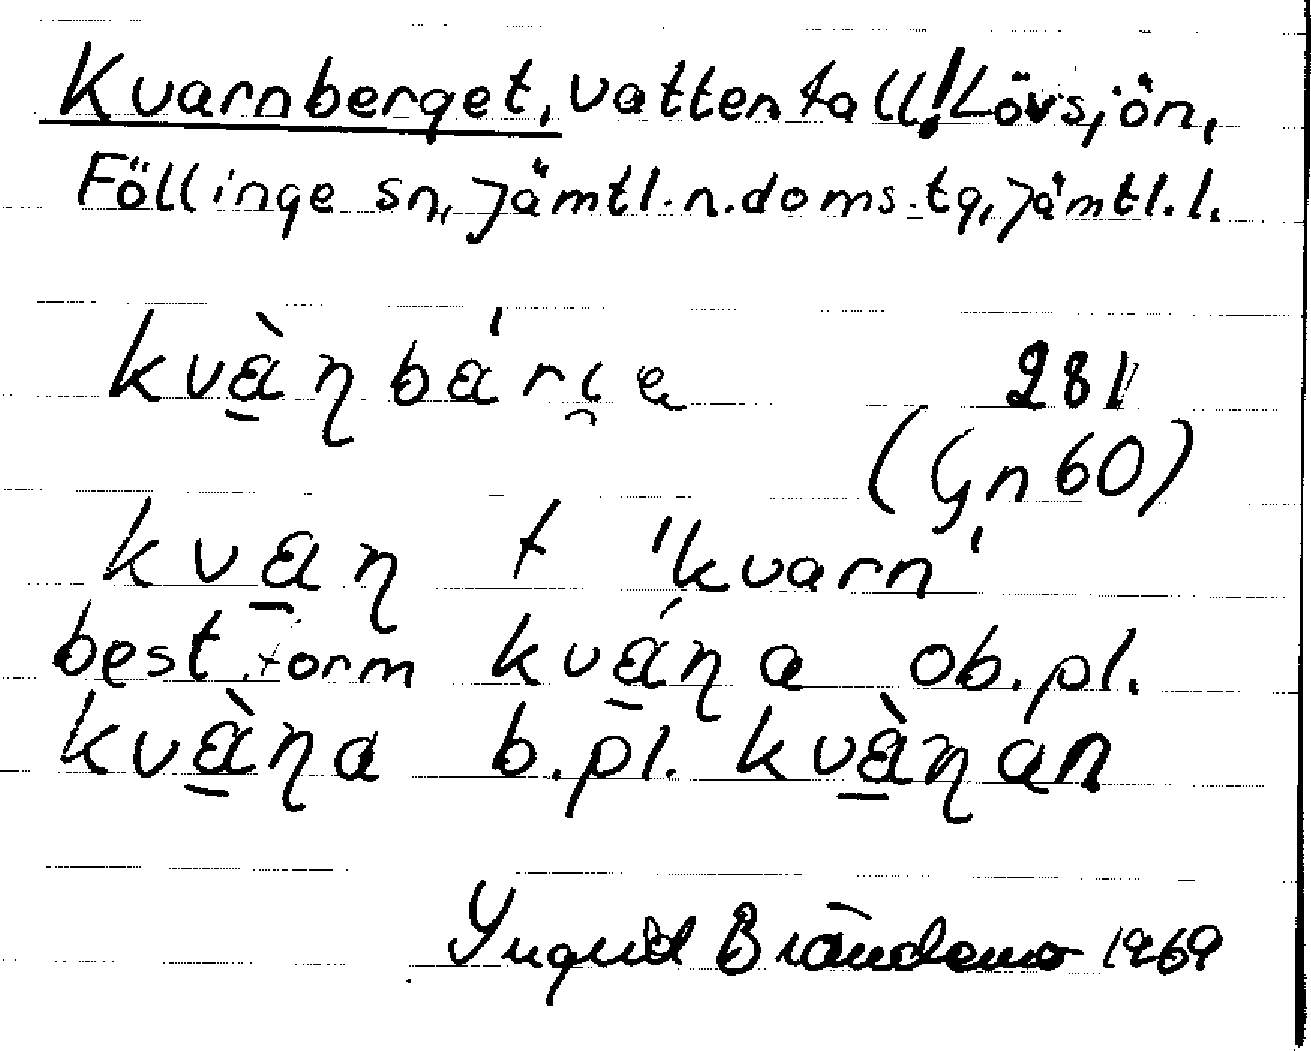 Kvarnberget, vattenfall! Lövsjön,
Föllinge sn, Jämtl. n. doms. tg, Jämtl. l.
kvæ̠̀ɳbǽri̯e 281
(Gn 60)
kvæ̠ɳ f 'kvarn'
best form kvǽ̠ɳa ob. pl.
kvæ̠̀ɳa b. pl. kvæ̠̀ɳan
Ingrid Brändemo 1969